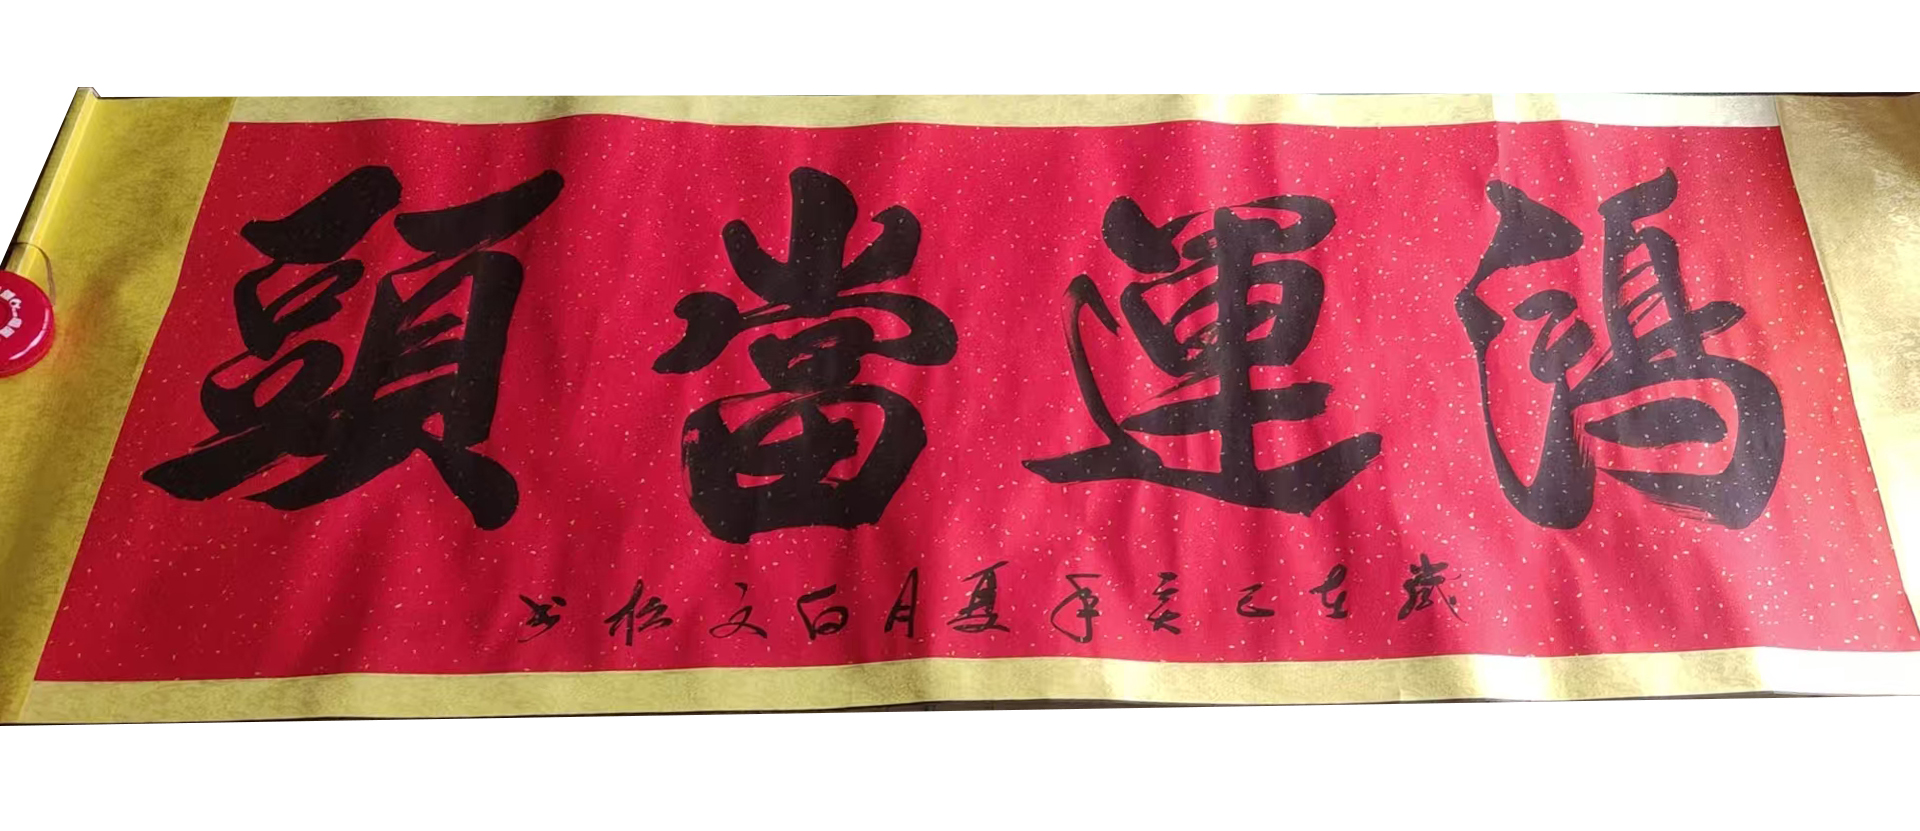 鴻運當頭
歲在己亥年夏月白文松书